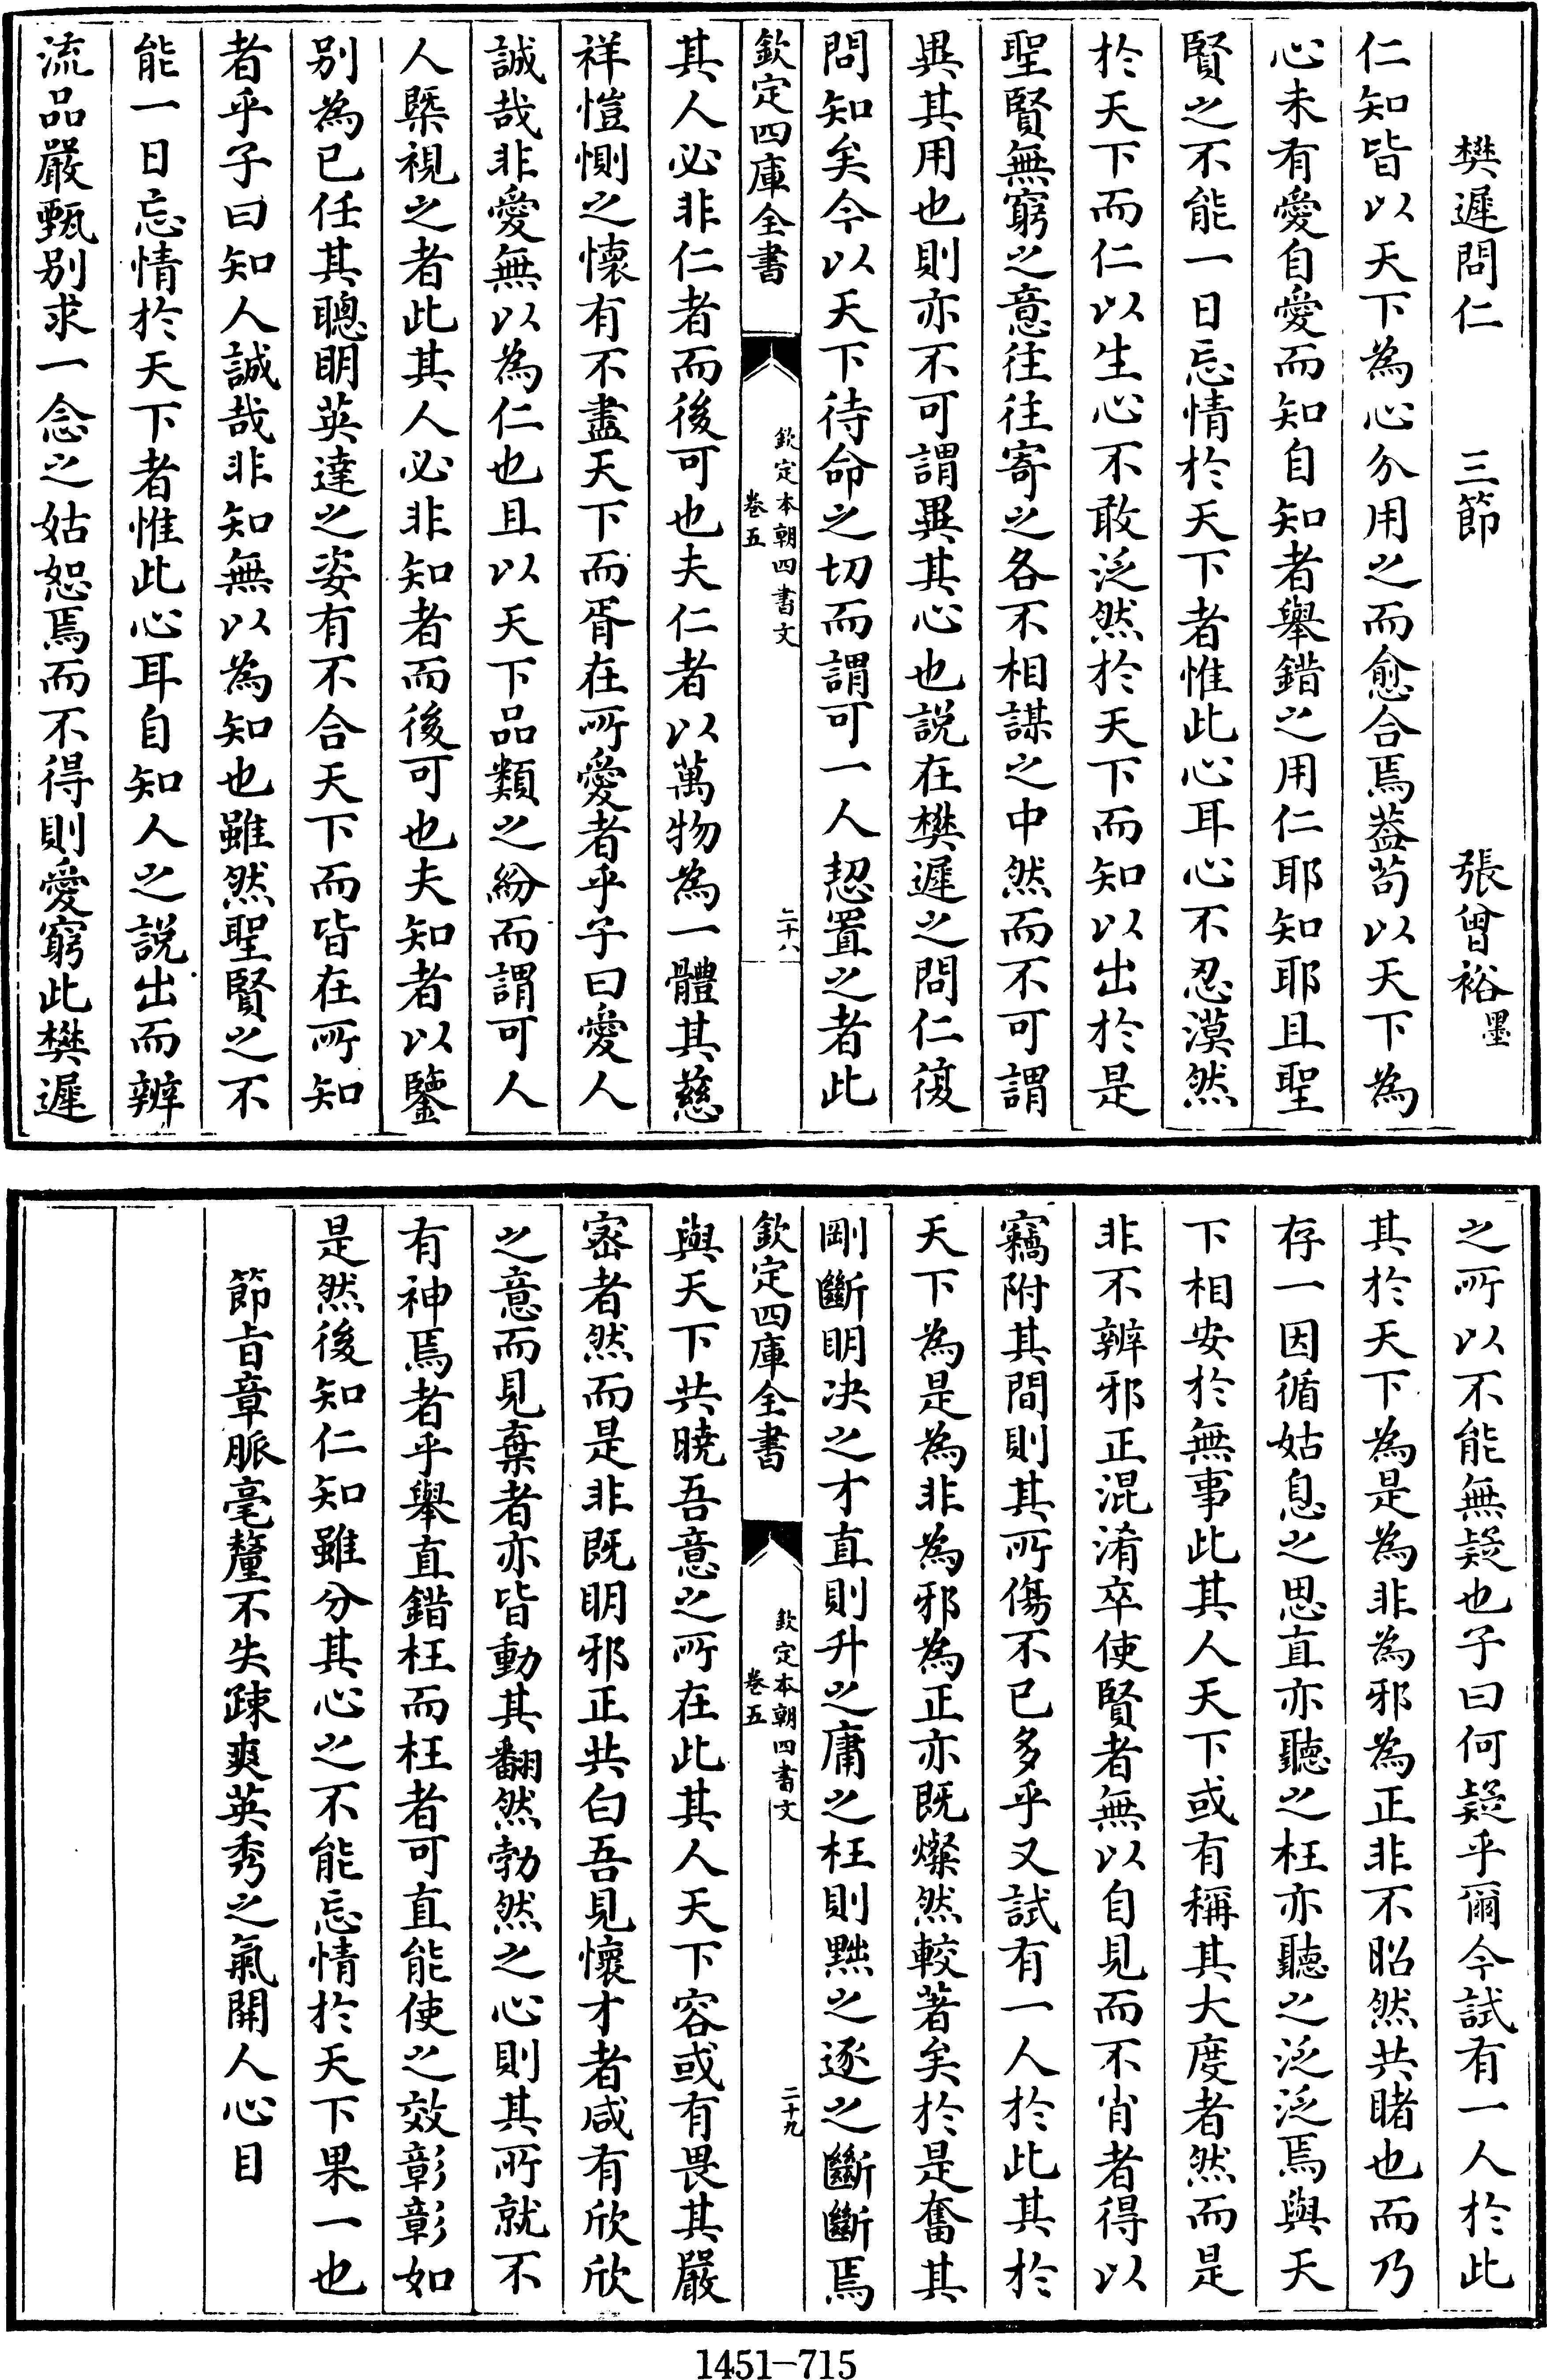 樊遲問仁　三節　張曾裕墨
仁知皆以天下為心分用之而愈合焉葢苟以天下為
心未有愛自愛而知自知者舉錯之用仁耶知耶且聖
賢之不能一日忘情於天下者惟此心耳心不忍漠然
於天下而仁以生心不敢泛然於天下而知以出於是
聖賢無窮之意往往寄之各不相謀之中然而不可謂
異其用也則亦不可謂異其心也説在樊遲之問仁復
問知矣今以天下待命之切而謂可一人恝置之者此
欽定四庫全書　欽定本朝四書文卷五　二十八
其人必非仁者而後可也夫仁者以萬物為一體其慈
祥愷惻之懷有不盡天下而胥在所愛者乎子曰愛人
誠哉非愛無以為仁也且以天下品類之紛而謂可人
人槩視之者此其人必非知者而後可也夫知者以鑒
别為已任其聰明英達之姿有不合天下而皆在所知
者乎子曰知人誠哉非知無以為知也雖然聖賢之不
能一日忘情於天下者惟此心耳自知人之説出而辨
流品嚴甄别求一念之姑恕焉而不得則愛窮此樊遲
之所以不能無疑也子曰何疑乎爾今試有一人於此
其於天下為是為非為邪為正非不昭然共睹也而乃
存一因循姑息之思直亦聽之枉亦聽之泛泛焉與天
下相安於無事此其人天下或有稱其大度者然而是
非不辨邪正混淆卒使賢者無以自見而不肖者得以
竊附其間則其所傷不已多乎又試有一人於此其於
天下為是為非為邪為正亦既燦然較著矣於是奮其
剛斷明决之才直則升之庸之枉則黜之逐之斷斷焉
欽定四庫全書　欽定本朝四書文卷五　二十九
與天下共曉吾意之所在此其人天下容或有畏其嚴
密者然而是非既明邪正共白吾見懷才者咸有欣欣
之意而見棄者亦皆動其翻然勃然之心則其所就不
有神焉者乎舉直錯枉而枉者可直能使之效彰彰如
是然後知仁知雖分其心之不能忘情於天下果一也
節旨章脈毫釐不失疎爽英秀之氣開人心目
1451-715